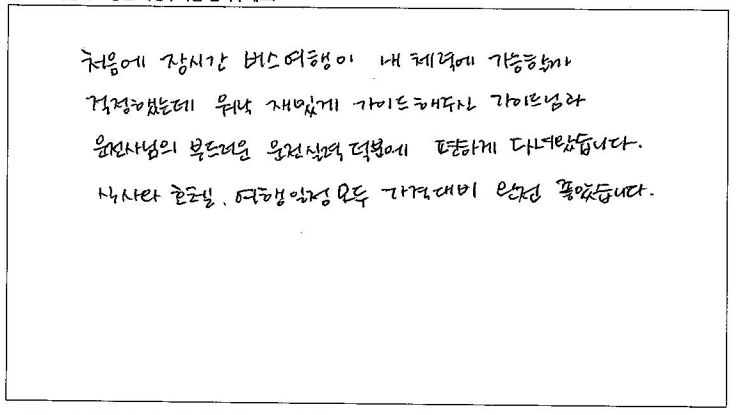 처음에 장시간 버스여행이 내 체력에 가능할까
걱정했는데 워낙 재밌게 가이드해주신 가이드님과
운전사님의 부드러운 운전실력 덕분에 편하게 다녀왔습니다.
식사와 호텔, 여행일정 모두 가격대비 완전 좋았습니다.